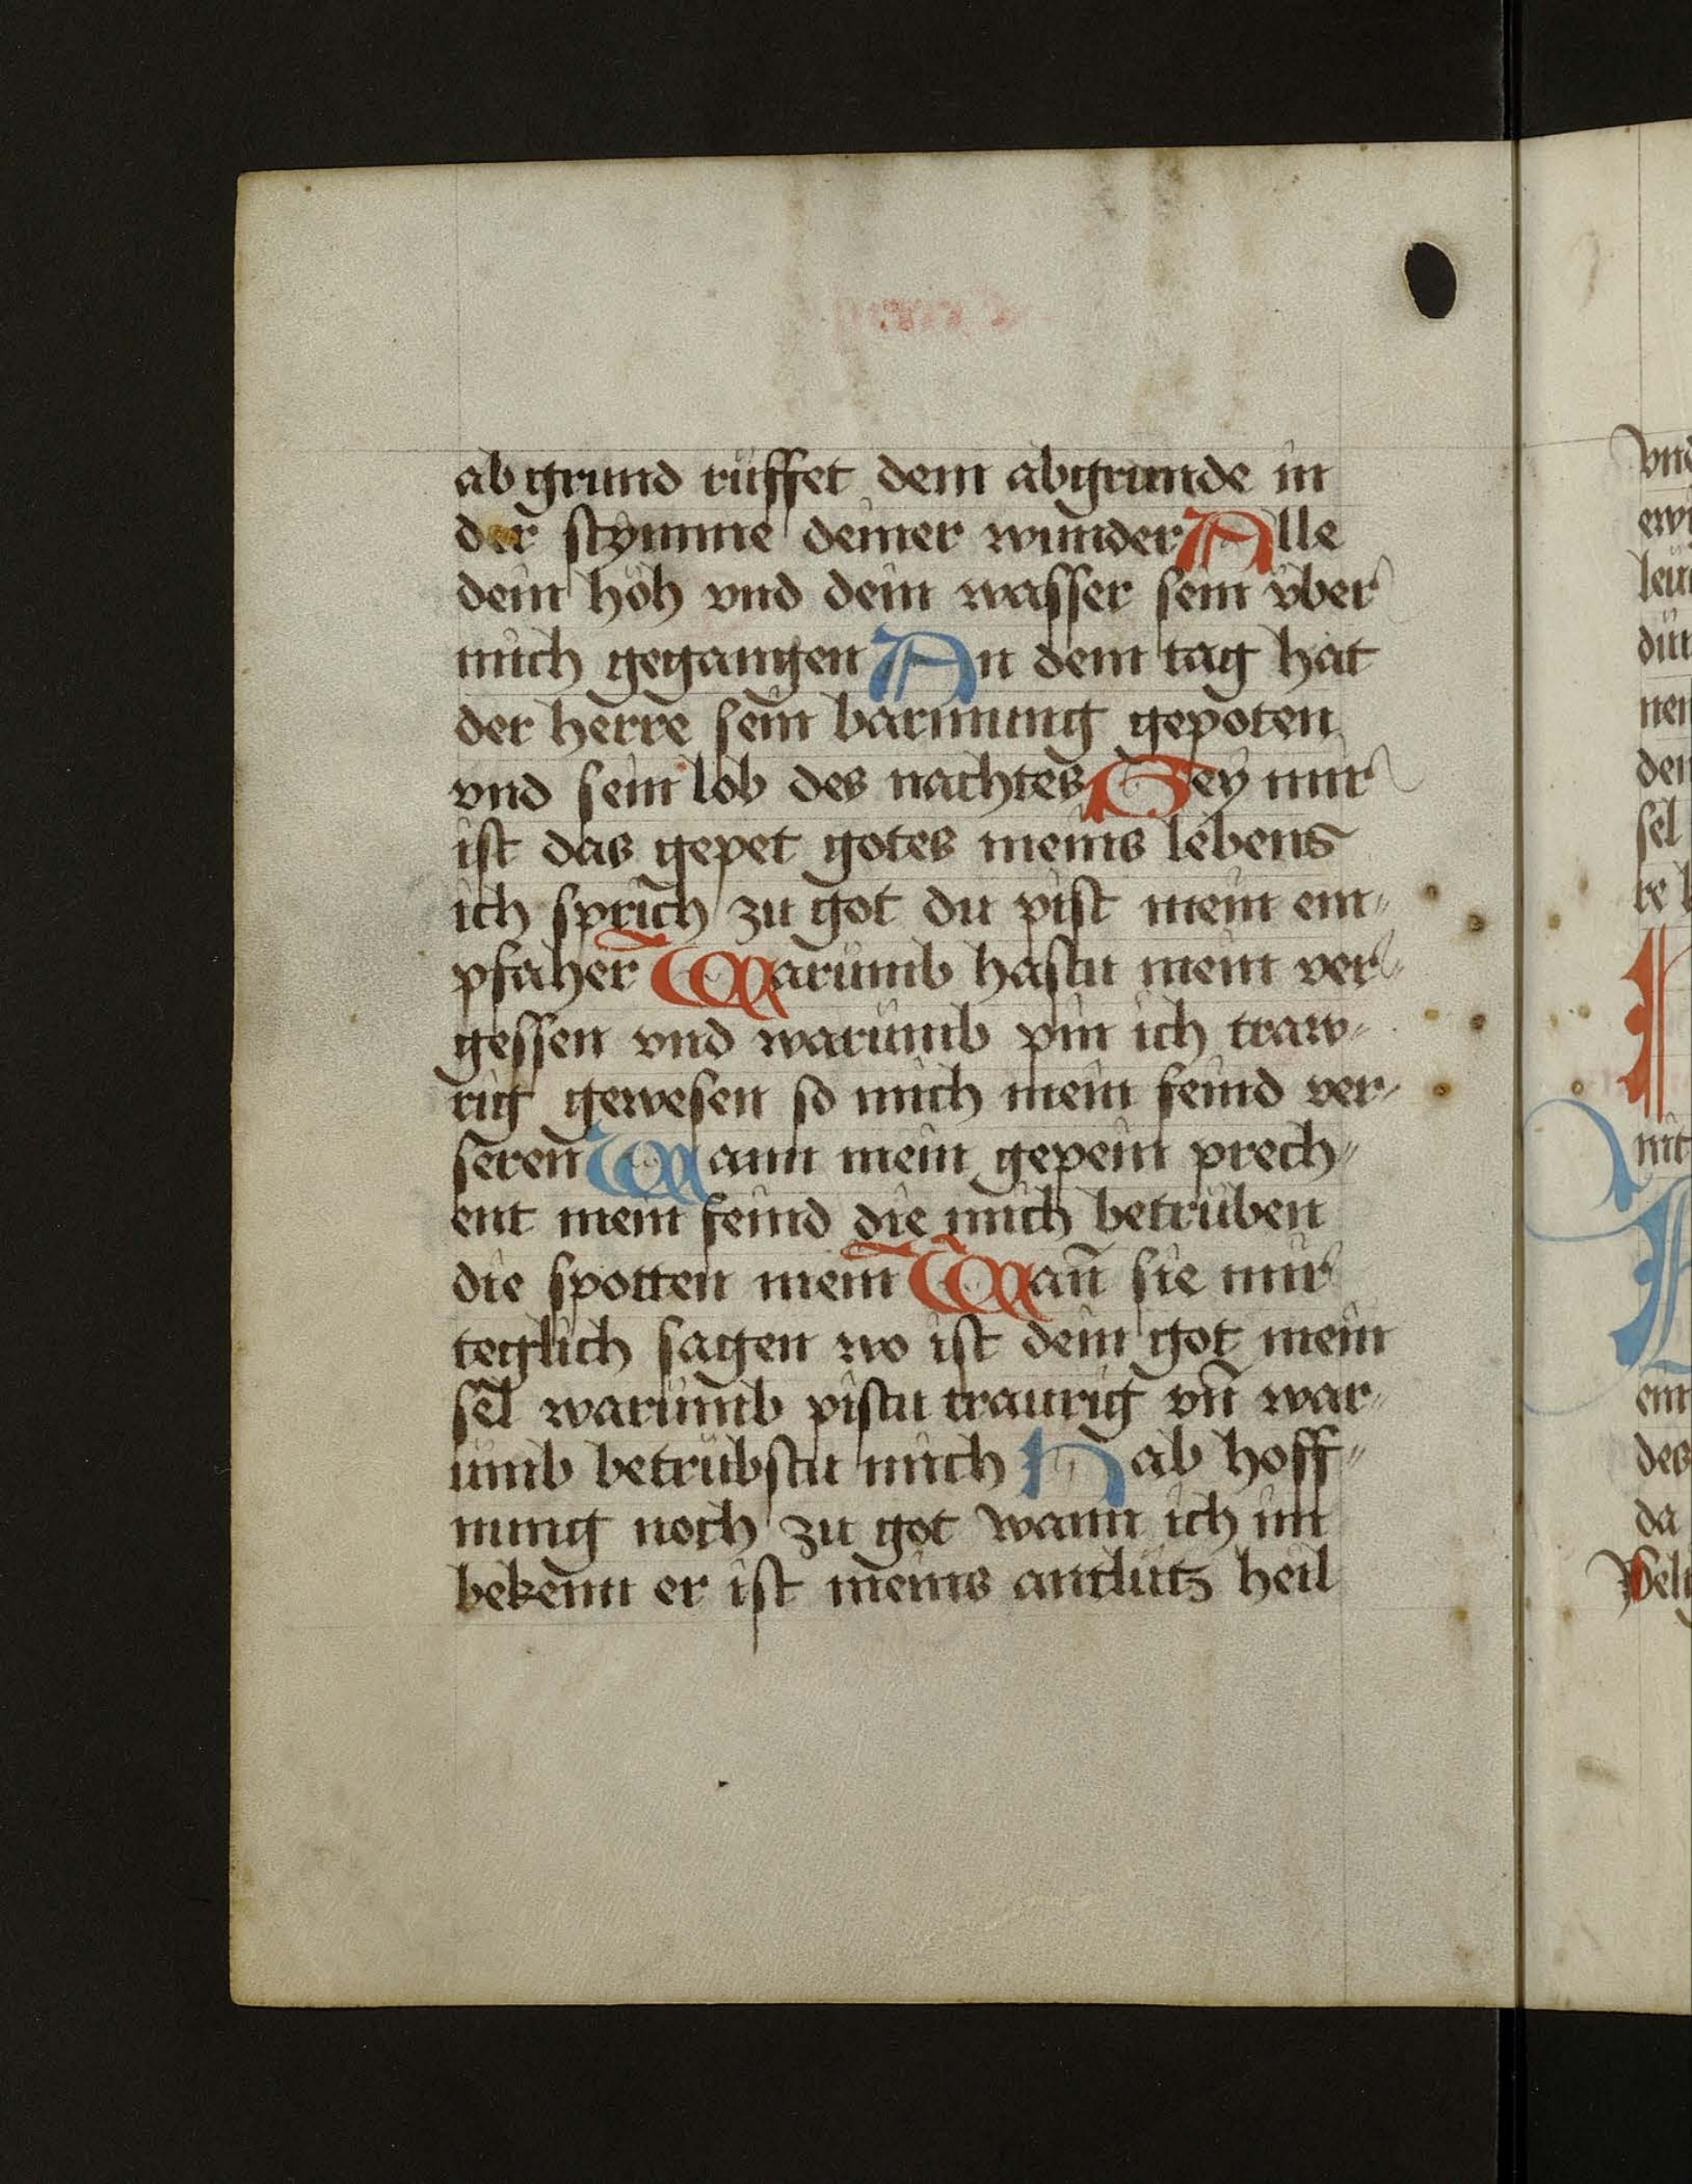 abgrund rüffet dem abgrunde in
der stymme deiner wunder Alle
dein höh vnd dein wasser sein vber
mich gegangen An dem tag hat
der herre sein barmung gepoten
vnd sein lob des nachtes Bey mir
ist das gepet gotes meins lebens
ich sprich zu got du pist mein em„
pfaher Warumb hastu mein ver„
gessen vnd warumb pin ich traw„
rig gewesen so mich mein feind ver„
seren Wann mein gepein prech„
ent mein feind die mich betrüben
die spotten mein Wañ sie mir
teglich sagen wo ist dein got mein
sel warumb pistu traurig vñ war„
umb betrübstu mich Hab hoff„
nung noch zu got wann ich im
bekenn er ist meins antlütz heil